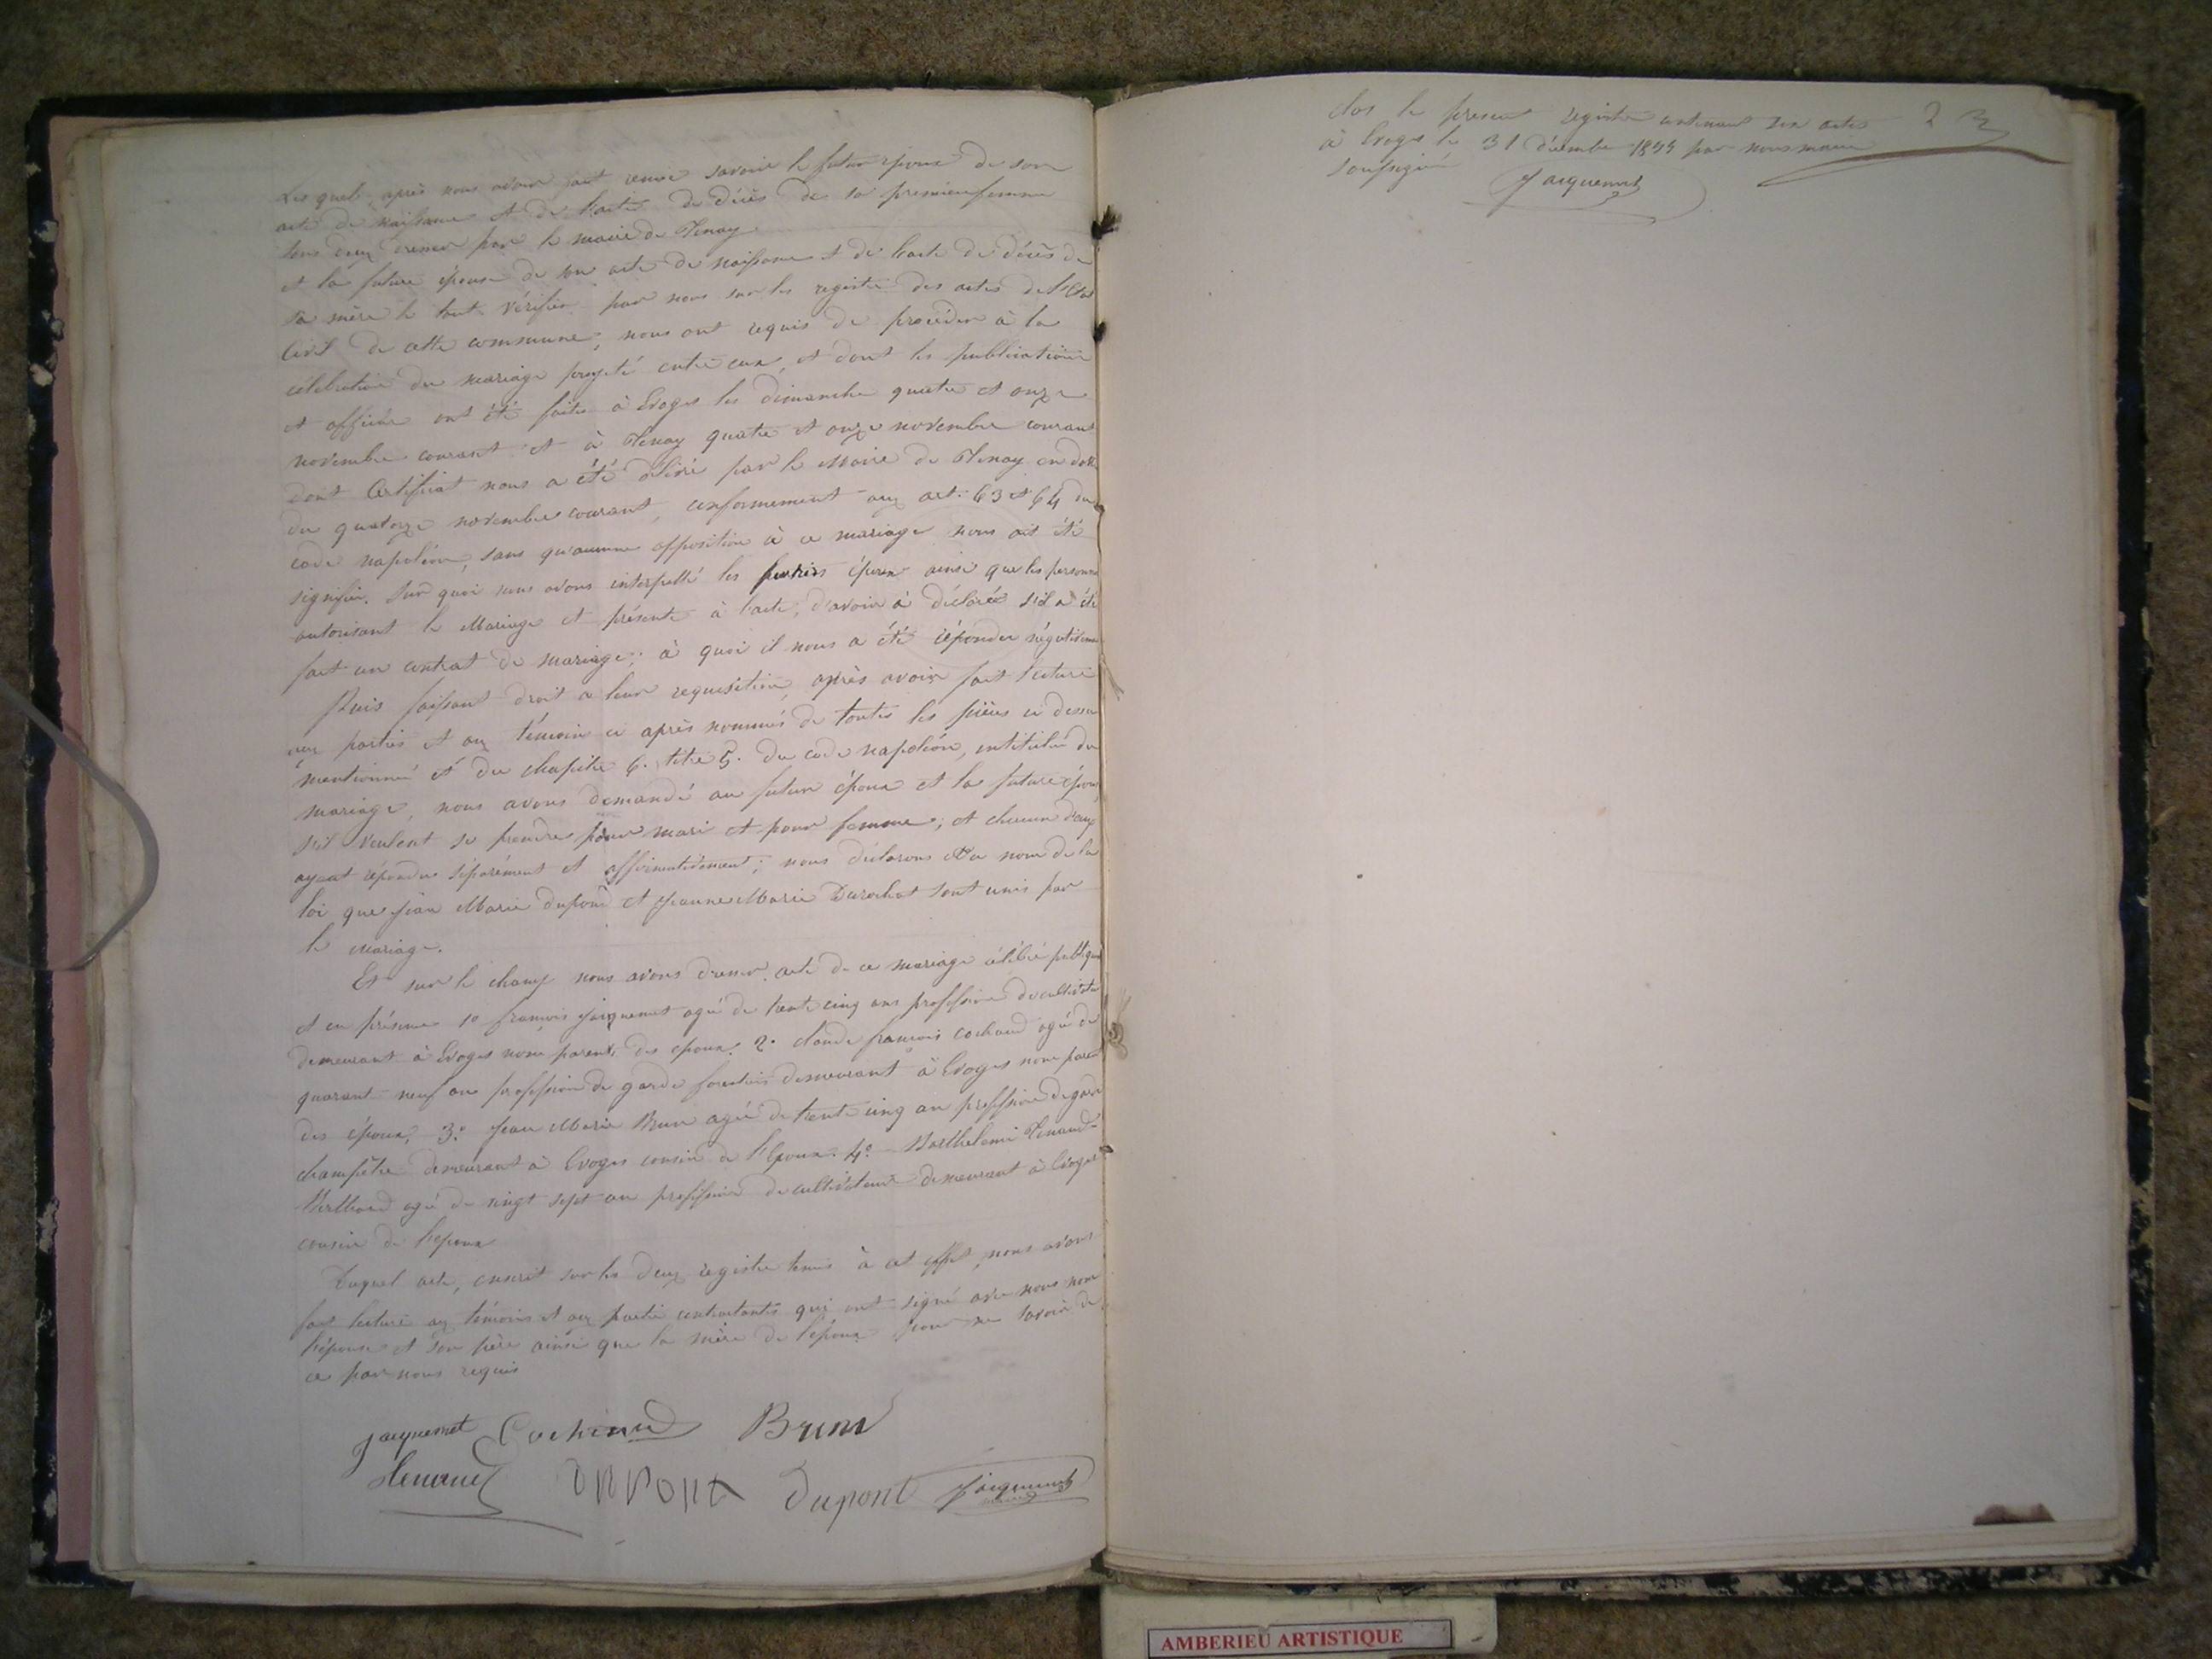 Lesquels, après nous avoir fait remise savoir le futur époux de son
acte de naissance et de l'acte de décès de sa première femme
tous deux dressés par le maire de Tenay
et la future épouse de son acte de naissance et de l'acte de décès de
sa mère le tout vérifié par nous sur les registre des actes de l'Etat
Civil de cette commune, nous ont requis de procéder à la
célébration du mariage projeté entre eux, et dont les publications
et affiche ont été faites à Evoges les dimanche quatre et onze
novembre courant et à Tenay quatre et onze novembre courant
dont Certificat nous a été délivré par le Maire de Tenay en date
du quatorze novembre courant, conformement aux art. 63 et 64 du
code napoléon, sans qu'aucune opposition à ce mariage nous ait été
signifié. Sur quoi nous avons interpellé les futurs époux ainsi que les personnes
autorisant le Mariage et présente à l'acte, d'avoir à déclaré s'il a été
fait un contrat de mariage; à quoi il nous a été répondu négativement
Puis faisant droit a leur requisition, après avoir fait lecture
aux parties et aux témoins ci après nommés de toutes les pièces ci dessus
mentionné et du chapitre 6. titre 5. du code napoléon, intitulé du
mariage, nous avons demandé au futur époux et la future épouse
s'il veulent se prendre pour mari et pour femme; et chacun d'eux
ayant répondu séparément et affirmativement; nous déclarons au nom de la
loi que Jean Marie dupont et Jeanne Marie Durochat sont unis par
le mariage.
Et sur le champ nous avons dressé acte de ce mariage célébré publiquement
et en présence 1º françois jacquemet agé de trente cinq ans profession de cultivateur
demeurant à Evoges non parent des époux. 2º claude françois cochaud agé de
quarant neuf an profession de garde forestier demeurant à Evoges non parent
des époux, 3º Jean Marie Brun agé de trente cinq an profession de garde
champêtre demeurant à Evoges cousin de l'Epoux. 4º Barthelemi Henaud
agé de vingt sept an profession de cultivateur demeurant à Evoges
cousin de l'epoux
Duquel acte, inscrit sur les deux registre tenus à cet effet, nous avons
fait lecture aux témoins et aux partie contractantes qui ont signé avec nous non
l'épouse et son père ainsi que la mère de l'époux pour ne savoir de
ce par nous requis
Jacquemet Cochaud Brun
Henaud dupont Dupont Jacquemet
clos le present registre contenant six actes
à Evoges le 31 décembre 1855 par nous maire
soussigné
Jacquemet
AMBERIEU ARTISTIQUE